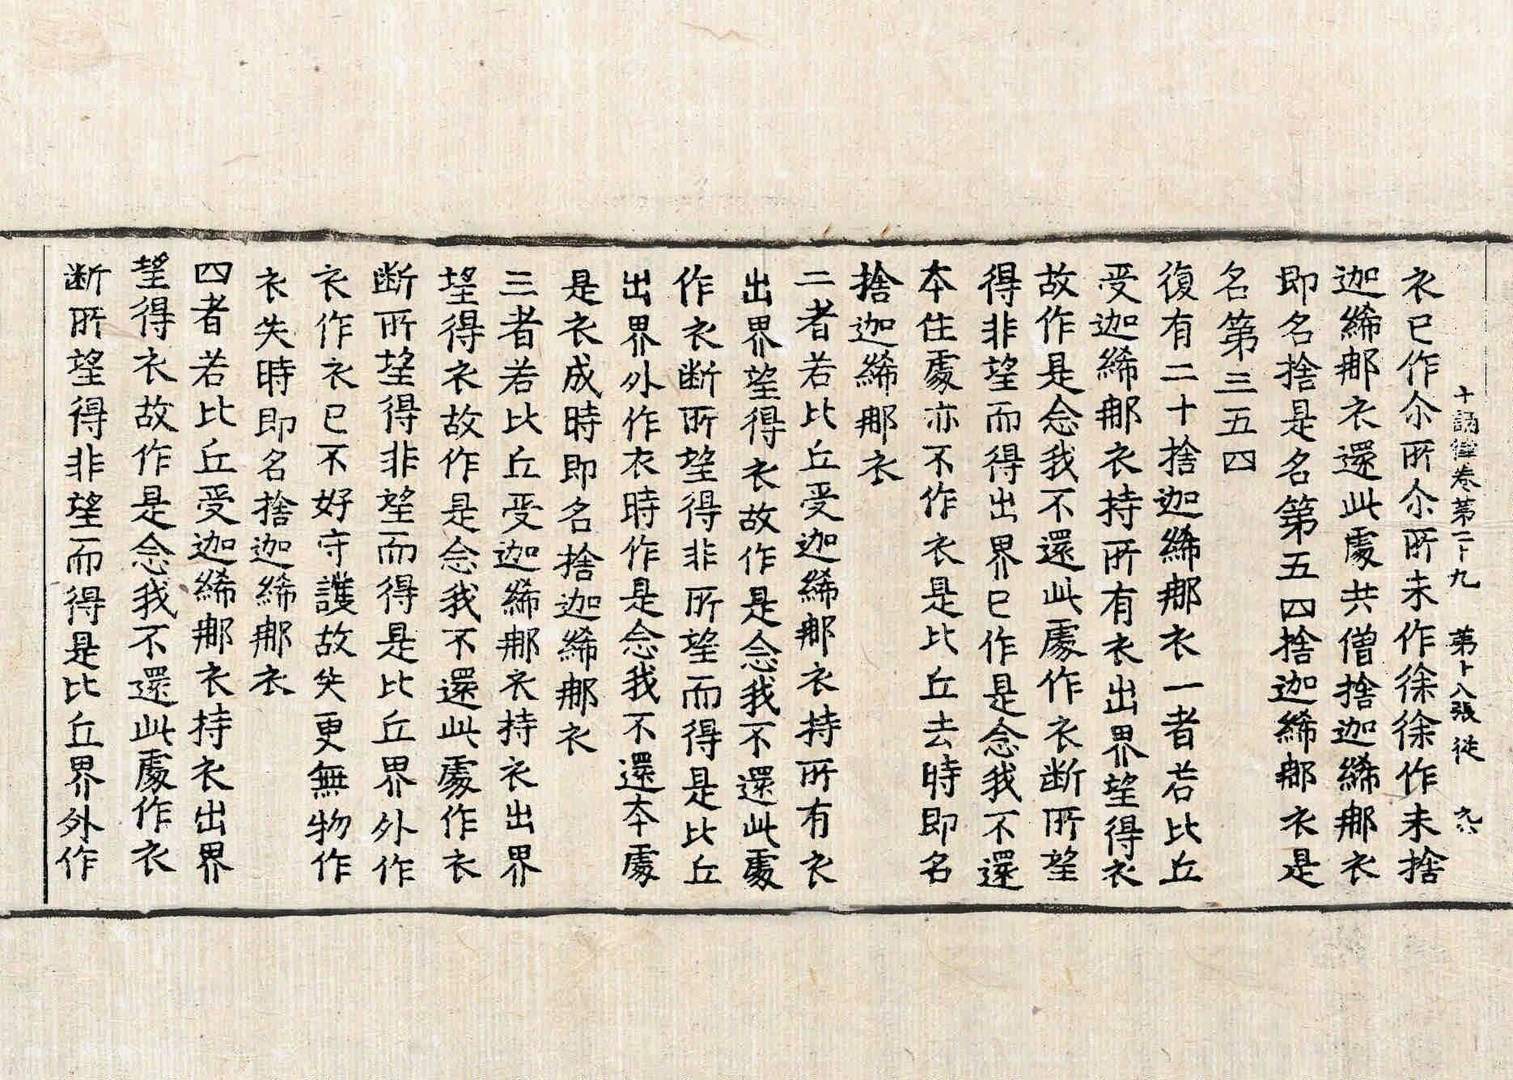 十誦律卷第二十九　第十八張　徒　九八
衣已作尒所尒所未作徐徐作未捨
迦絺那衣還此處共僧捨迦絺那衣
即名捨是名第五四捨迦絺那衣是
名第三五四
復有二十捨迦絺那衣一者若比丘
受迦絺那衣持所有衣出界望得衣
故作是念我不還此處作衣断所望
得非望而得出界已作是念我不還
本住處亦不作衣是比丘去時即名
捨迦絺那衣
二者若比丘受迦絺那衣持所有衣
出界望得衣故作是念我不還此處
作衣断所望得非所望而得是比丘
出界外作衣時作是念我不還本處
是衣成時即名捨迦絺那衣
三者若比丘受迦絺那衣持衣出界
望得衣故作是念我不還此處作衣
断所望得非望而得是比丘界外作
衣作衣已不好守護故失更無物作
衣失時即名捨迦絺那衣
四者若比丘受迦絺那衣持衣出界
望得衣故作是念我不還此處作衣
断所望得非望而得是比丘界外作